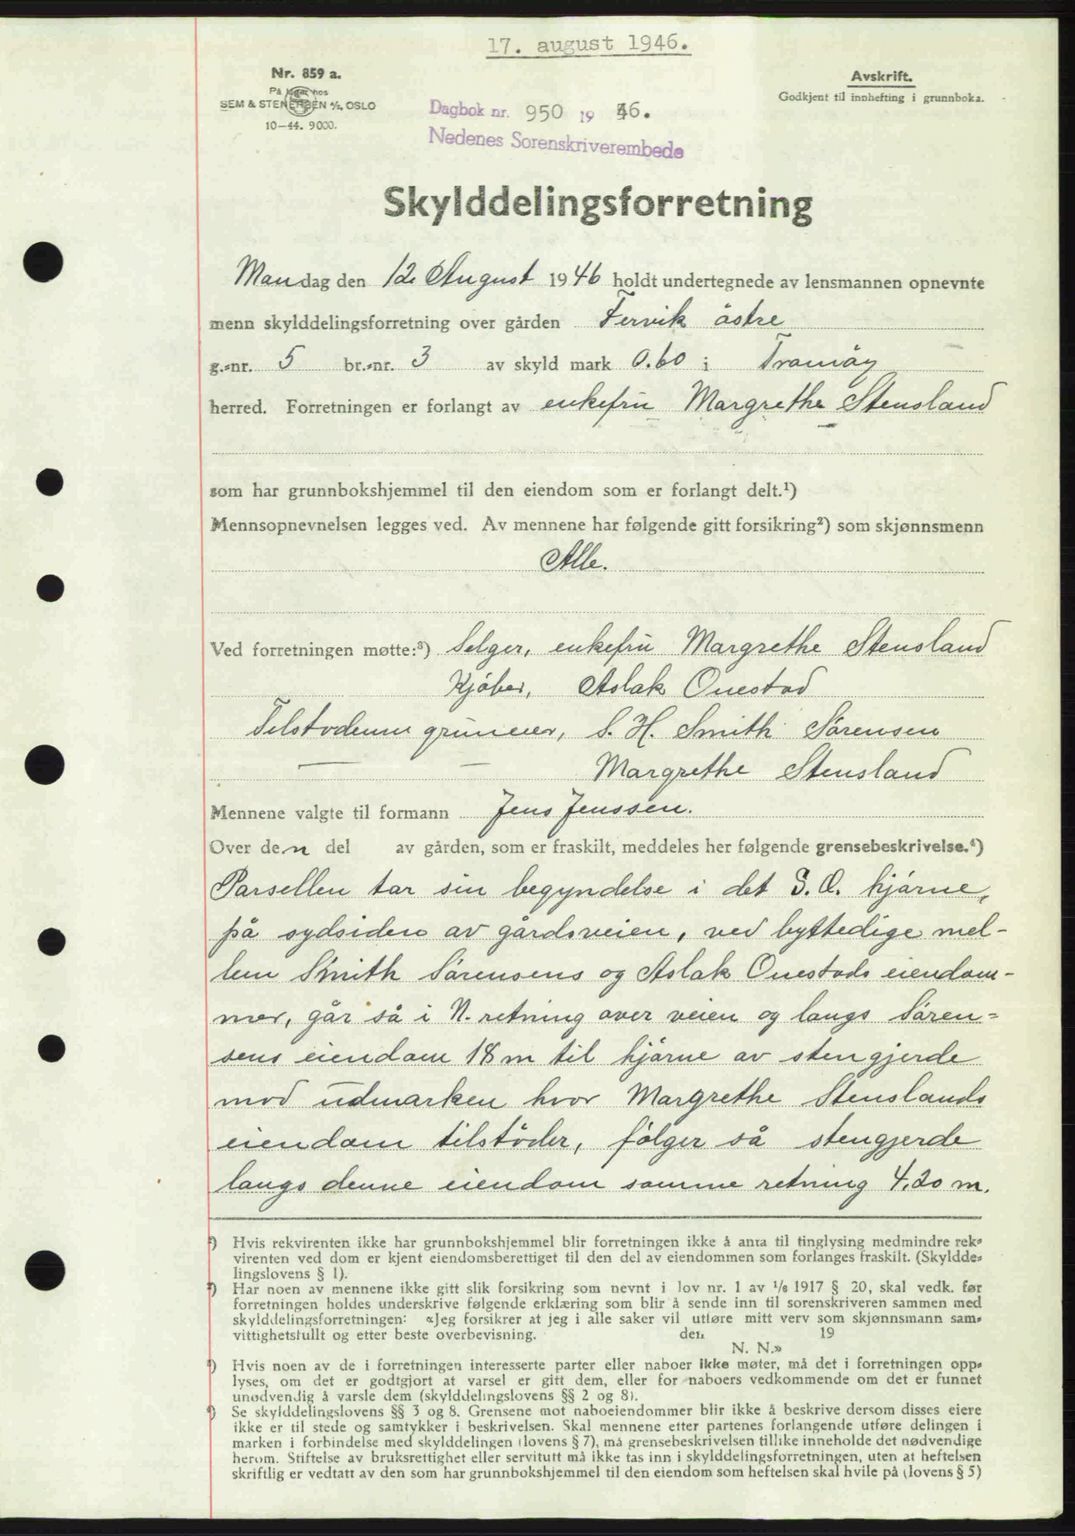 17. august 1946.
Nr. 859 a.
På lager hos
SEM & STENERSEN A/S, OSLO
10—44. 9000.
Avskrift.
Godkjent til innhefting i grunnboka.
Dagbok nr. 950 19 46.
Nedenes Sorenskriverembede
Skylddelingsforretning
Mandag den 12. August 1946 holdt undertegnede av lensmannen opnevnte
menn skylddelingsforretning over gården Fervik östre
g.-nr. 5 br.-nr. 3 av skyld mark 0.60 i Tromöy
herred. Forretningen er forlangt av enkefru Margrethe Stensland
som har grunnbokshjemmel til den eiendom som er forlangt delt.¹)
Mennsopnevnelsen legges ved. Av mennene har følgende gitt forsikring²) som skjønnsmenn
Alle.
Ved forretningen møtte:³) Selger, enkefru Margrethe Stensland
Kjöber, Aslak Onestad
Tilstödenne grunneier, S. H. Smith Sörensen
— — Margrethe Stensland
Mennene valgte til formann Jens Jenssen.
Over den del av gården, som er fraskilt, meddeles her følgende grensebeskrivelse.⁴)
Parsellen tar sin begyndelse i det S.O. hjörne,
på sydsiden av gårdsveien, ved byttedige mel-
lem Smith Sörensens og Aslak Onestads eiendom-
mer, går så i N. retning over veien og langs Sören-
sens eiendom 18 m til hjörne av stengjerde
mod udmarken hvor Margrethe Stenslands
eiendom tilstöder, fölger så stengjerde
langs denne eiendom samme retning 4,20 m.
¹) Hvis rekvirenten ikke har grunnbokshjemmel blir forretningen ikke å anta til tinglysing medmindre rek-
virenten ved dom er kjent eiendomsberettiget til den del av eiendommen som forlanges fraskilt. (Skyldde-
lingslovens § 1).
²) Har noen av mennene ikke gitt slik forsikring som nevnt i lov nr. 1 av 1/6 1917 § 20, skal vedk. før
forretningen holdes underskrive følgende erklæring som blir å sende inn til sorenskriveren sammen med
skylddelingsforretningen: «Jeg forsikrer at jeg i alle saker vil utføre mitt verv som skjønnsmann sam-
vittighetsfullt og etter beste overbevisning. den 19
N. N.»
³) Hvis noen av de i forretningen interesserte parter eller naboer ikke møter, må det i forretningen opp-
lyses, om det er godtgjort at varsel er gitt dem, eller for naboers vedkommende om det er funnet
unødvendig å varsle dem (skylddelingslovens §§ 2 og 8).
⁴) Se skylddelingslovens §§ 3 og 8. Grensene mot naboeiendommer blir ikke å beskrive dersom disses eiere
ikke er til stede og samtykker i beskrivelsen. Skal mennene etter partenes forlangende utføre delingen i
marken i forbindelse med skylddelingen (lovens § 7), må grensebeskrivelsen tillike inneholde det nødvendige
herom. Stiftelse av bruksrettighet eller servitutt må ikke tas inn i skylddelingsforretningen, uten at heftelsen
skriftlig er vedtatt av den som har grunnbokshjemmel til den eiendom som heftelsen skal hvile på (lovens § 5)